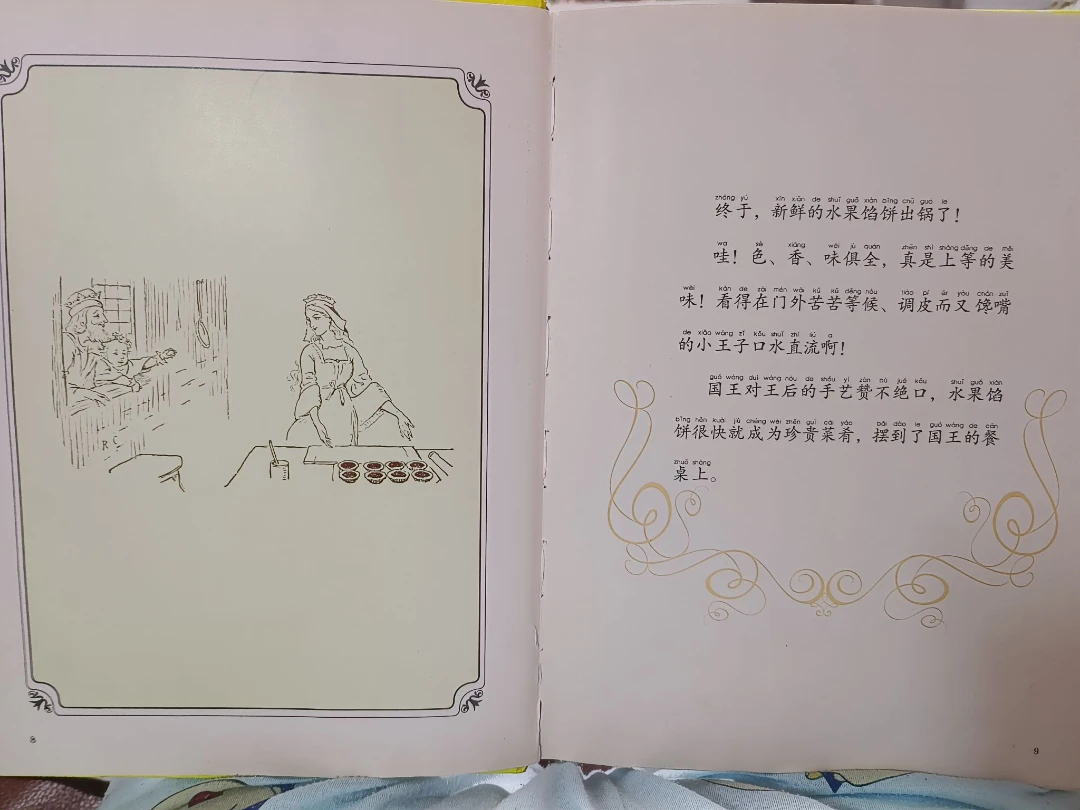 R C
8
zhōng yú xīn xiān de shuǐ guǒ xiàn bǐng chū guō le
终于，新鲜的水果馅饼出锅了！
wa sè xiāng wèi jù quán zhēn shì shàng děng de měi
哇！色、香、味俱全，真是上等的美
wèi kàn de zài mén wài kǔ kǔ děng hòu tiáo pí ér yòu chán zuǐ
味！看得在门外苦苦等候、调皮而又馋嘴
de xiǎo wáng zǐ kǒu shuǐ zhí liú a
的小王子口水直流啊！
guó wáng duì wáng hòu de shǒu yì zàn bù jué kǒu shuǐ guǒ xiàn
国王对王后的手艺赞不绝口，水果馅
bǐng hěn kuài jiù chéng wéi zhēn guì cài yáo bǎi dào le guó wáng de cān
饼很快就成为珍贵菜肴，摆到了国王的餐
zhuō shàng
桌上。
9